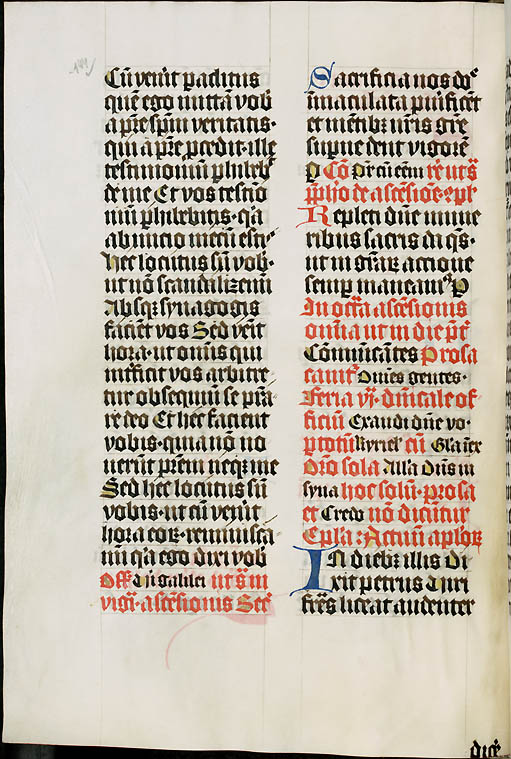 Cū veñit paclitus
quē ego mittā vob
a pr̄e sp̄m veritatis·
qui a pr̄e p̄cedit· ille
testimoniū phibeb̄
de me Et vos testiō
niū phibebitis· q̄a
ab inicio mecū estis
Hec locutus sū vob·
ut nō scandalizemī
Absq; synagogis
faciēt vos Sed veīt
hora· ut omnis qui
īnfficit vos arbitre
tur obsequiū se p̄ta
re deo Et hec facient
vobis· quia nō no
uerūt prēm neq; me
Sed hec locutus sū
vobis· ut cū veñit
hora eoꝝ· reminisca
mī q̄a ego dixi vob
Off̄ Uiri galilei ut s̄ in
vigī· ascēsionis Sec̄
Sacrificia nos dn̄e
īmaculata purificēt
et mētib; nr̄is grē
supne dent vigorē
P Cō Pr̄ cū eēm re ut s̄
p̄lio de ascēsiōe· cpl̄
Repleti dn̄e mune
ribus sacris da q̄s·
ut in gr̄aꝝ actione
semp maneam⁹ P
In octa ascēsionis
om̄ia ut in die p̄t
Cōmunicātes Prosa
cant̄ Om̄es gentes·
Feria vj· dn̄icale of
ficiū Exaudi dn̄e vo·
p totū Kyriel̄ cū Gl̄a iex̄
dn̄o sola All̄a Dn̄s in
syna hoc solū· prosa
et Credo nō dicūtur
Ep̄la: Actuū aploꝝ
In dieb; illis Di
xit petrus Uiri
fr̄es liceat audenter
dicē